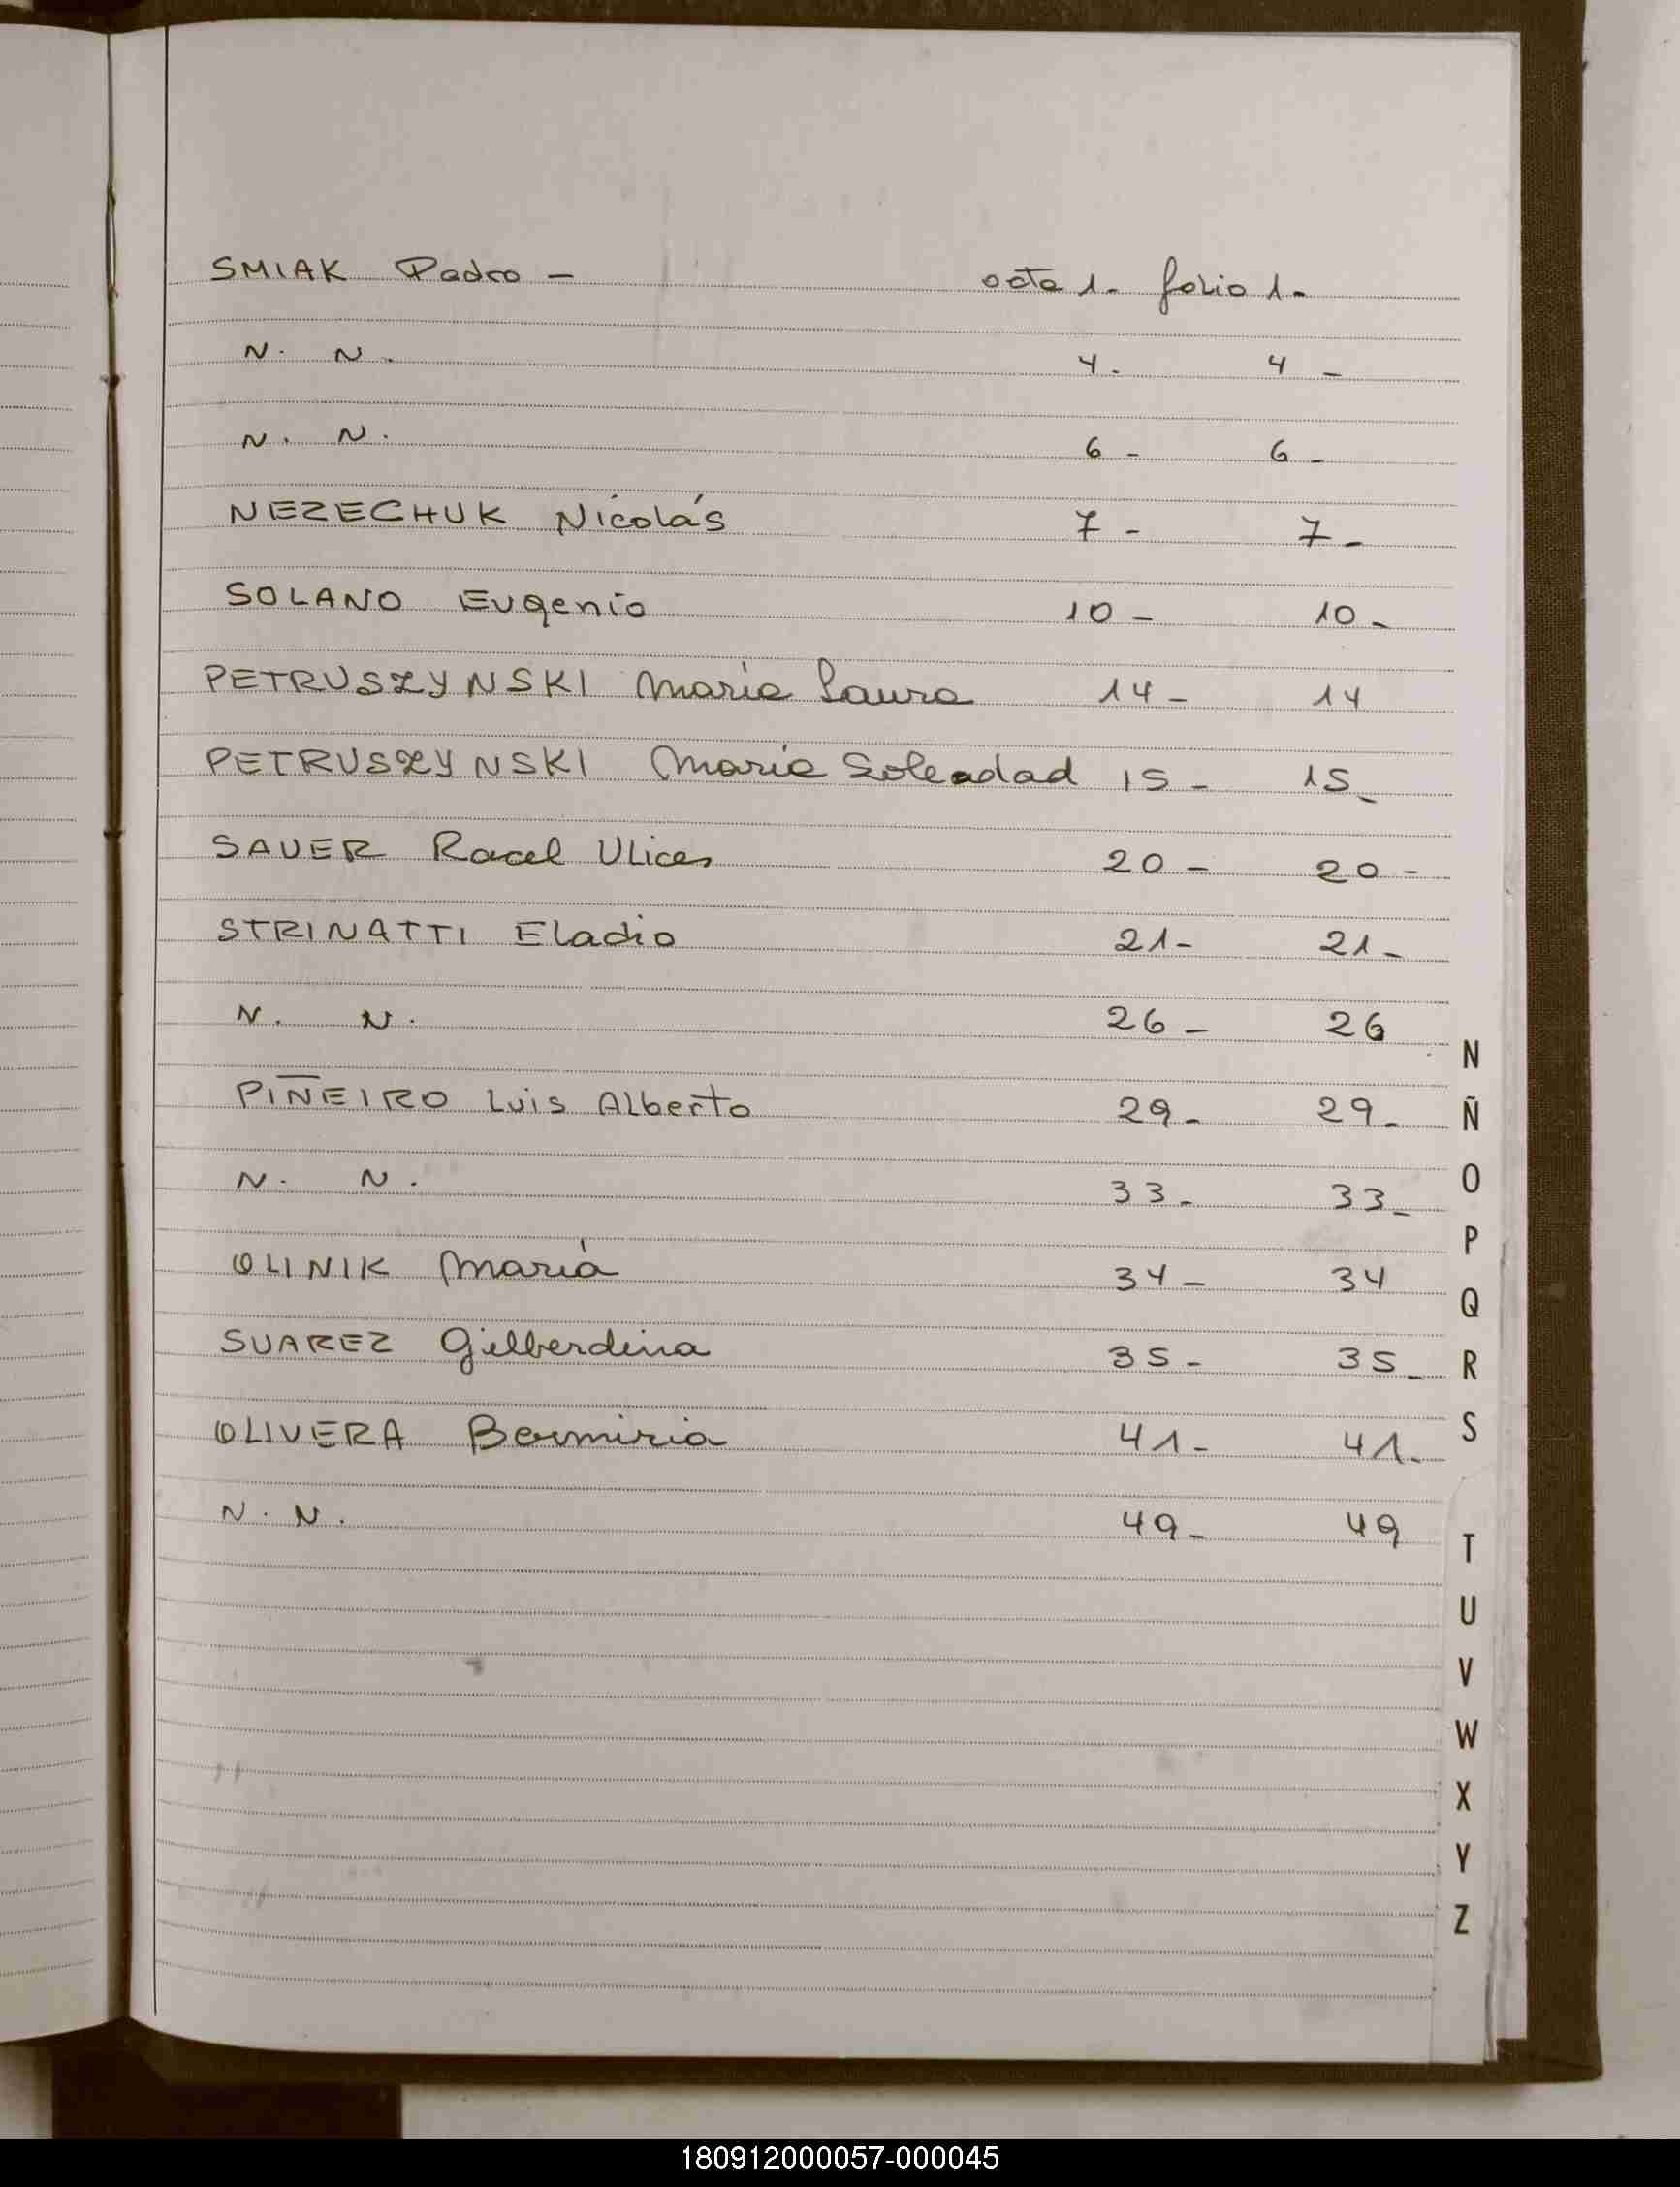 SMIAK Pedro - acta 1- folio 1-
N. N. 4- 4-
N. N. 6- 6-
NEZECHUK Nicolás 7- 7-
SOLANO Eugenio 10- 10-
PETRUSZYNSKI María Laura 14- 14
PETRUSZYNSKI María Soledad 15- 15-
SAUER Racel Ulices 20- 20-
STRINATTI Eladio 21- 21-
N. N. 26- 26
PIÑEIRO Luis Alberto 29- 29-
N. N. 33- 33-
OLINIK María 34- 34
SUAREZ Gilberdina 35- 35-
OLIVERA Bermiria 41- 41-
N. N. 49- 49
N
Ñ
O
P
Q
R
S
T
U
V
W
X
Y
Z
180912000057-000045